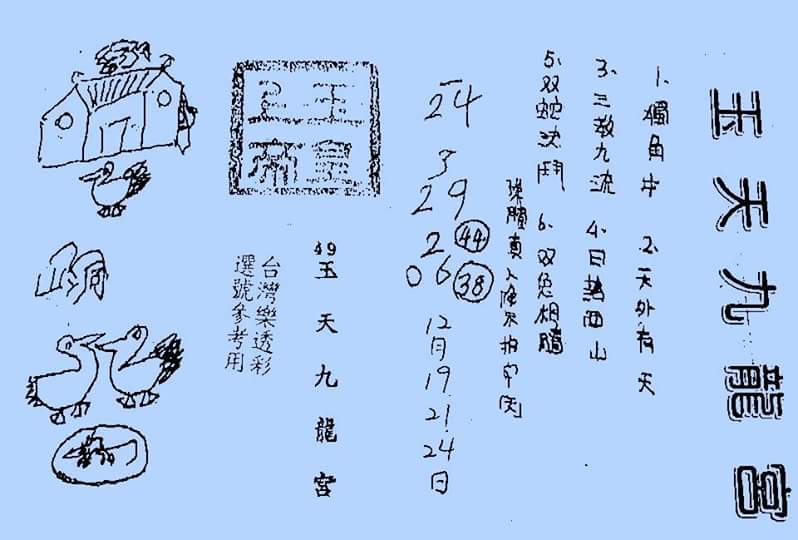 玉天九龍宮
1、獨角牛 2、天外有天
3、三教九流 4、日西山
5、双蛇決鬥 6、双兔相
真人降
24
3
29
2 44
06 38
12月19 21 24日
玉皇上帝
49
玉天九龍宮
台灣樂透彩
選號參考用